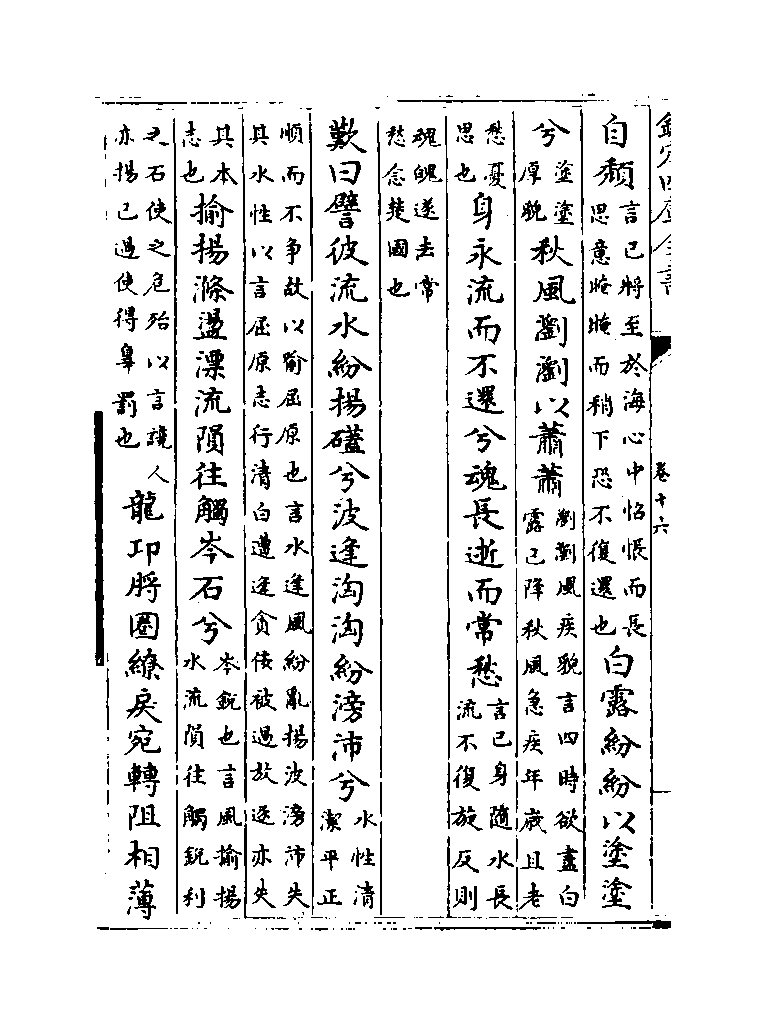 欽定四庫全書 卷十六
自頽言已將至於海心中怊悵而長思意晻晻而稍下恐不復還也白露紛紛以塗塗
兮塗塗厚貌秋風瀏瀏以蕭蕭瀏瀏風疾貌言四時欲盡白露已降秋風急疾年歲且老
愁憂思也身永流而不還兮魂長逝而常愁言已身隨水長流不復旋反則
魂魄遂去常愁念楚國也
歎曰譬彼流水紛揚磕兮波逢洶洶紛滂沛兮水性清潔平正
順而不爭故以喻屈原也言水逢風紛亂揚波滂沛失其水性以言屈原志行清白遭逢貪佞被過放逐亦失
其本志也揄揚滌盪漂流隕往觸岑石兮岑銳也言風揄揚水流隕往觸銳利
之石使之危殆以言讒人亦揚已過使得辠罰也龍卭脟圈繚戾宛轉阻相薄